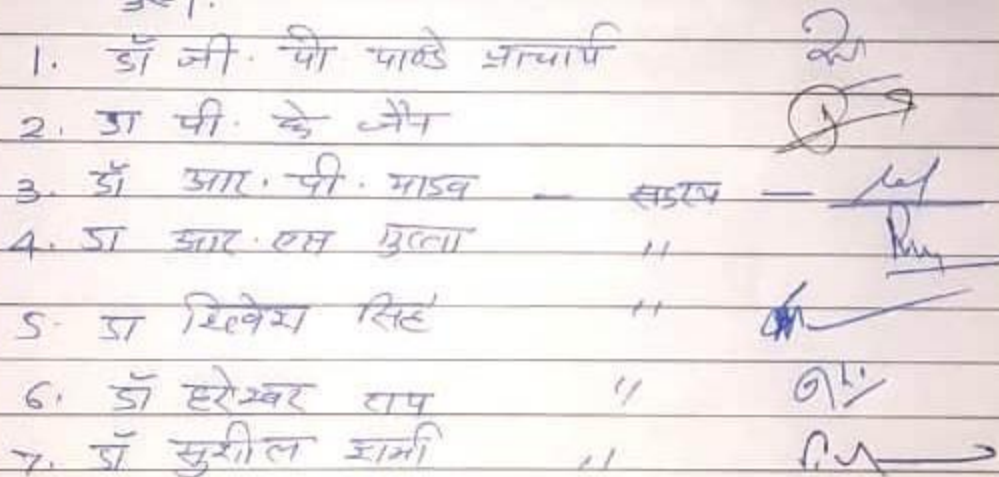 1. डॉ जी. पी पाण्डे प्राचार्य
2. डा पी. के जैन
3. डॉ आर. पी. यादव — सदस्य —
4. डा आर. एस गुप्ता "
5. डा सिंह "
6. डॉ हरेश्वर राय "
7. डॉ सुशील शर्मा "